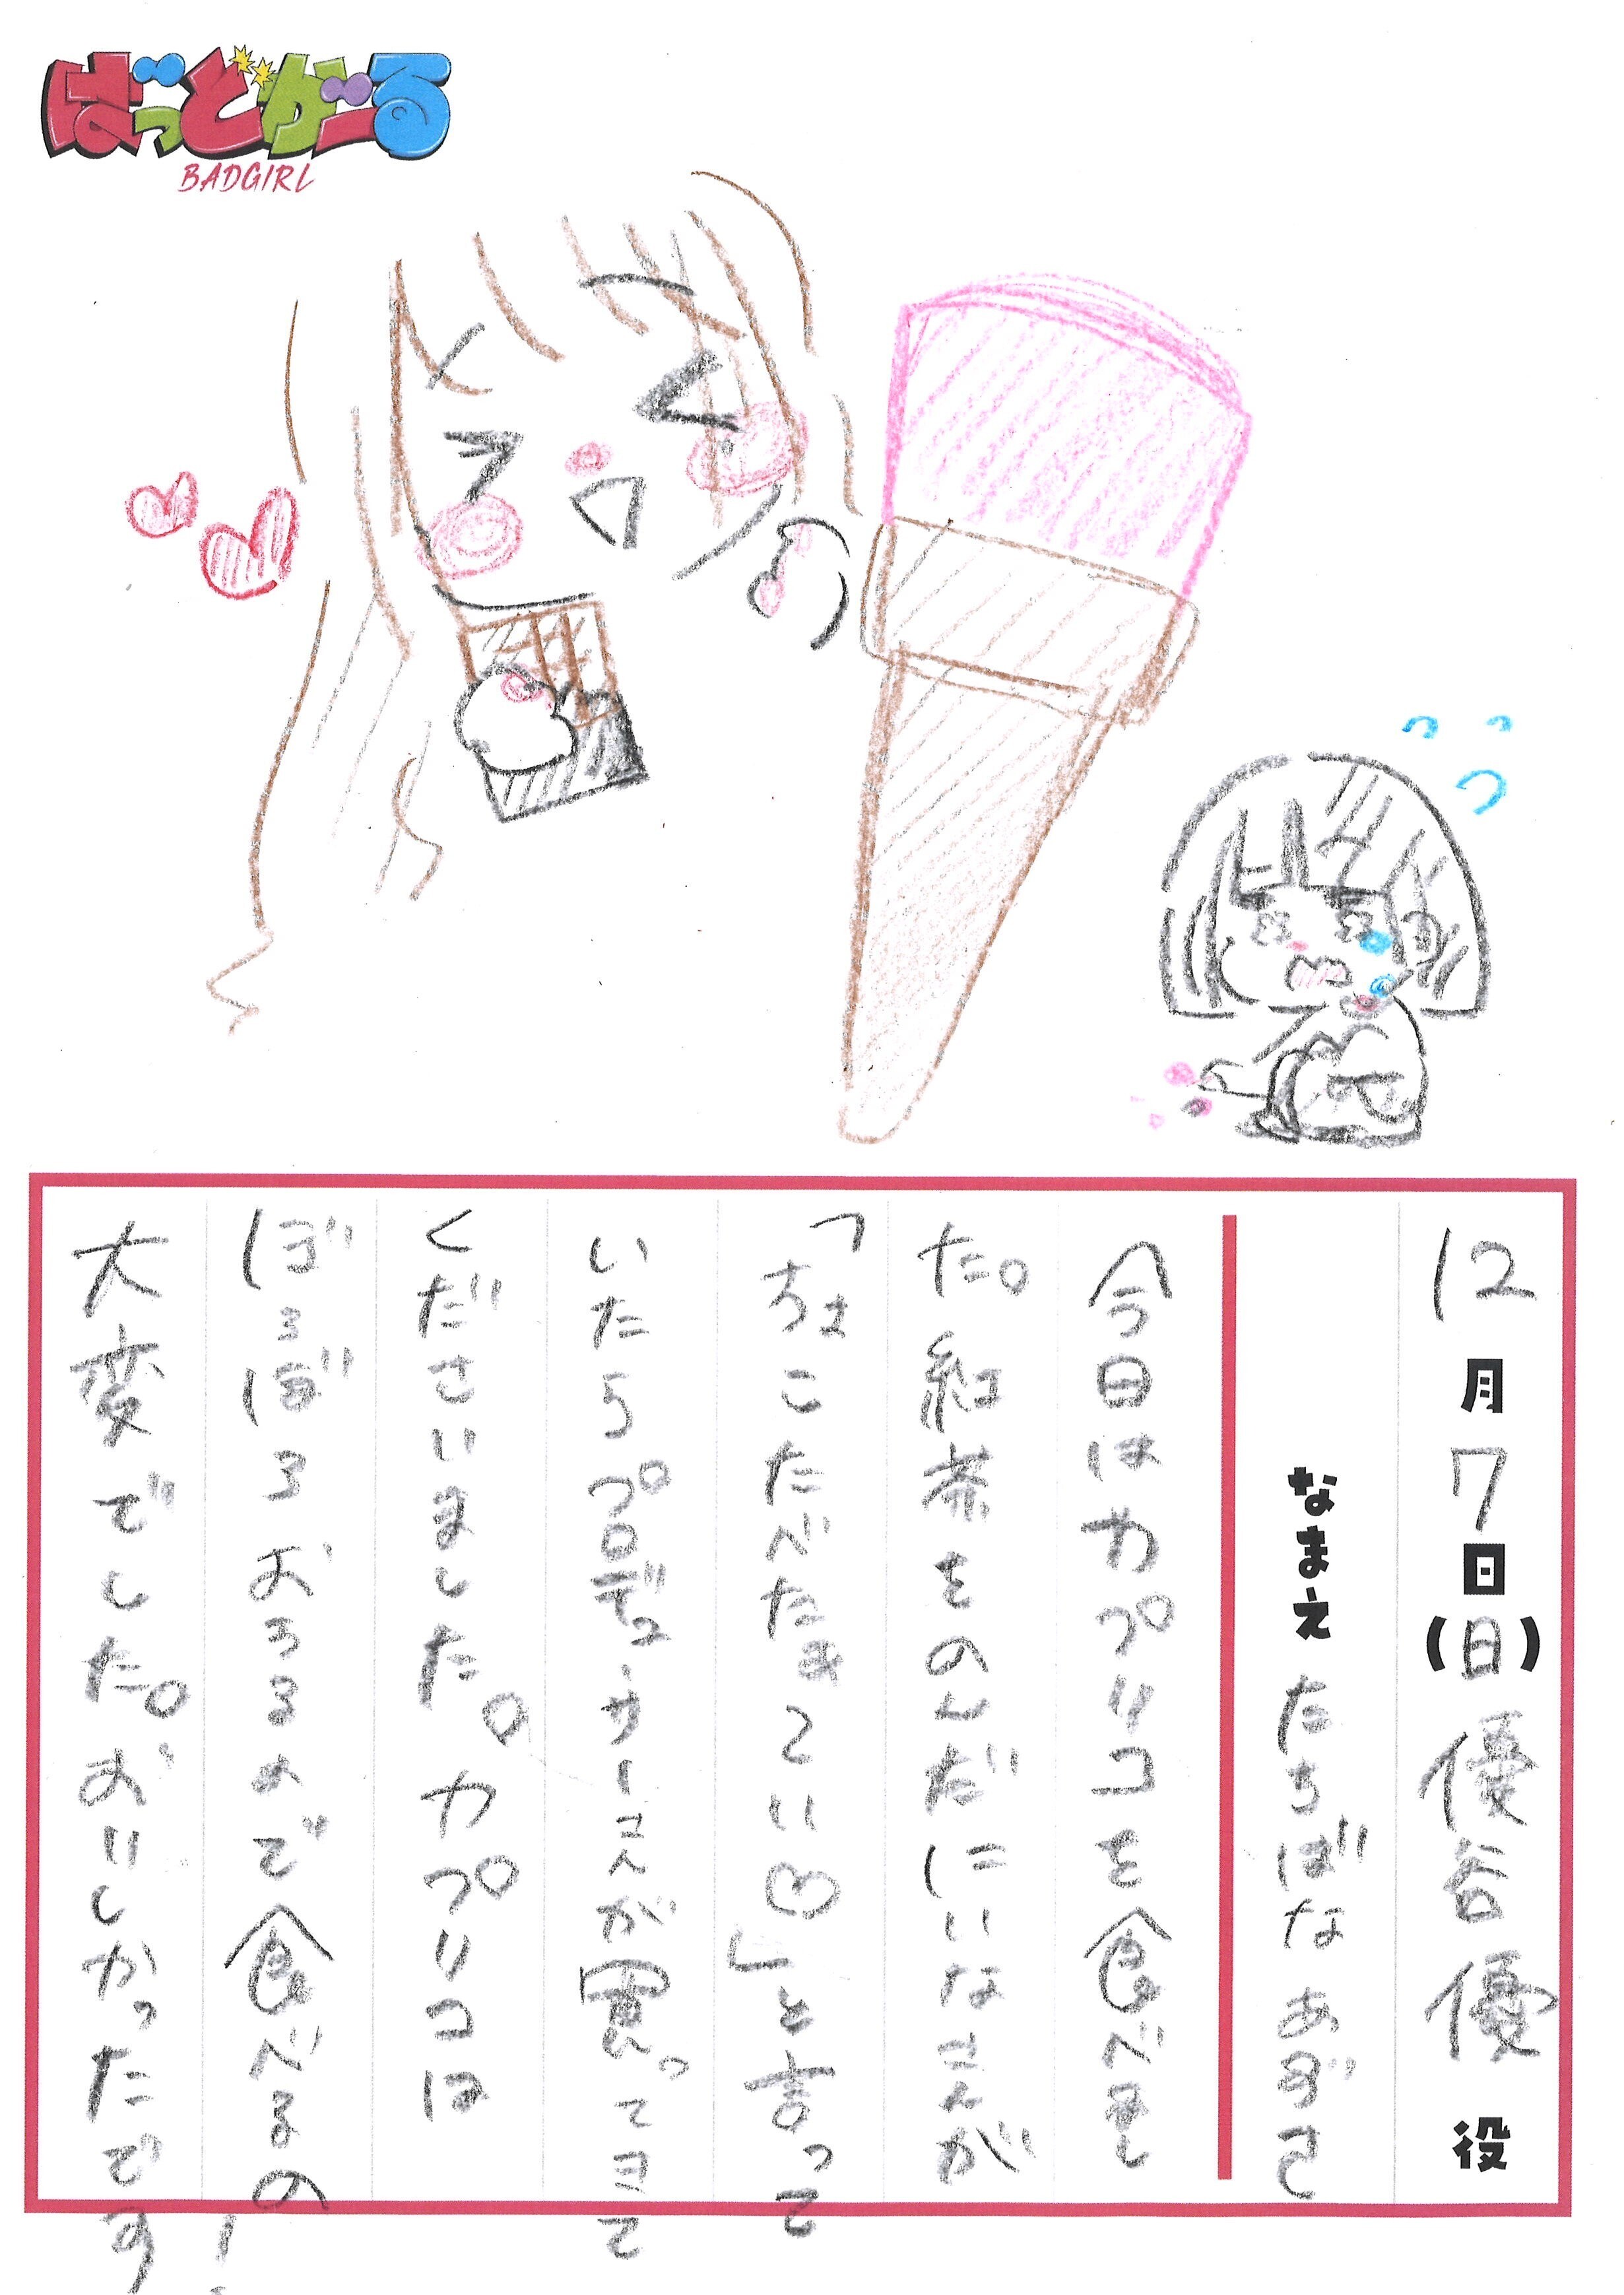 ばっどがーる
BADGIRL
12月7日(日)優谷優 役
なまえ たちばなあずさ
今日はカプリコを食べまし
た。紅茶をのんだにいなさんが
「ちょこたべたきてい♡」と言って
いたらプロデューサーさんが買ってきて
くださいました。カプリコは
ぼろぼろおちるので食べるの
大変でした。おいしかったです!